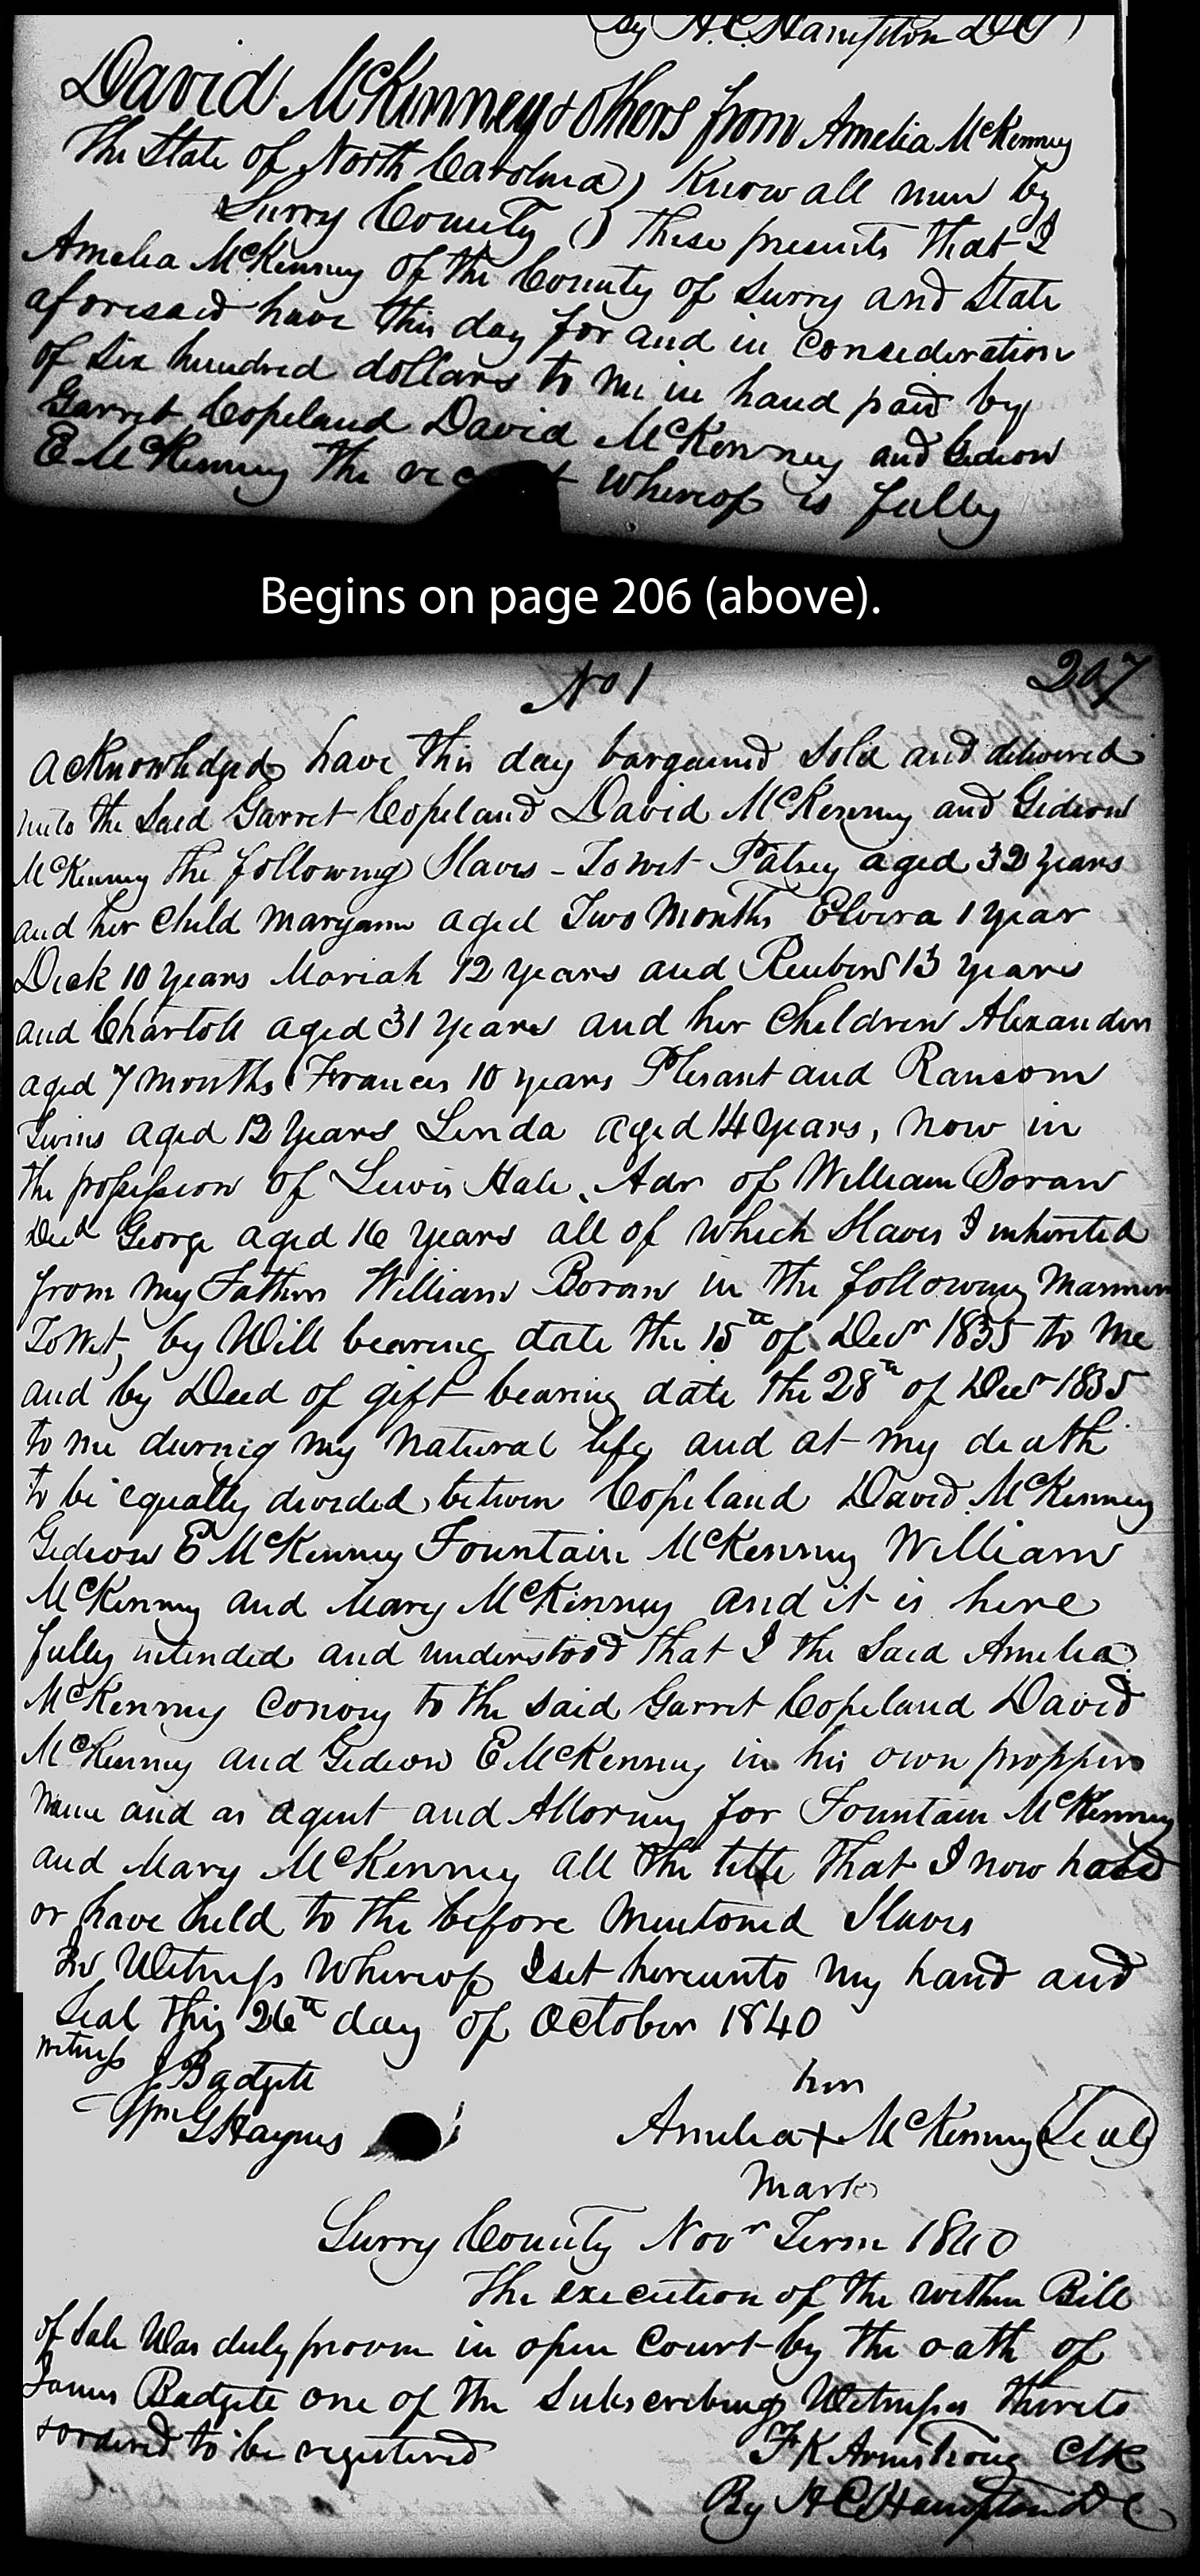 By H. C. Hampton D C)
David McKinney & others from Amelia McKenney
The State of North Carolina) Know all men by
Surry County () these presents that I
Amelia McKinney of the County of Surry and State
aforesaid have this day for and in Consideration
of Six hundred dollars to me in hand paid by
Garret Copeland David McKenney and Gideon
E McKenney the rec t whereof is fully
Begins on page 206 (above).
No 1
207
acknowledged have this day bargained Sold and delivered
unto the Said Garret Copeland David McKenney and Gideon
McKenney the following Slaves - To wit Patsey aged 32 years
and her Child Maryann aged Two Months Elvira 1 year
Dick 10 years Mariah 12 years and Reuben 13 years
and Charlott aged 31 years and her Children Alexander
aged 7 months Frances 10 years Plesant and Ransom
Twins aged 12 years Linda aged 14 years, now in
the possession of Lewis Hale, Adr of William Boran
Decd George aged 16 years all of which Slaves I inherited
from my Father William Boran in the following Manner
To Wit, by Will bearing date the 15th of Decr 1835 to me
and by Deed of gift bearing date the 28th of Decr 1835
to me during my natural life and at my death
to be equally divided between Copeland David McKenney
Gideon E McKenney Fountain McKenney William
McKenney and Mary McKenney and it is here
fully intended and understood that I the Said Amelia
McKenney Convey to the said Garret Copeland David
McKenney and Gideon E McKenney in his own propper
name and as agent and Attorney for Fountain McKenney
and Mary McKenney all the title that I now hold
or have held to the before Mentoned Slaves
In Witness Whereof I set hereunto my hand and
Seal this 26th day of October 1840
Witness
J Badgete
Wm G Haynes
her
Amelia + McKenney (Seal)
Mark
Surry County Novr Term 1840
The execution of the within Bill
of Sale Was duly proven in open Court by the oath of
James Badgete one of the Subscribing Witnesses thereto
& ordered to be registered
F K Armstrong Clk
By H C Hampton D C